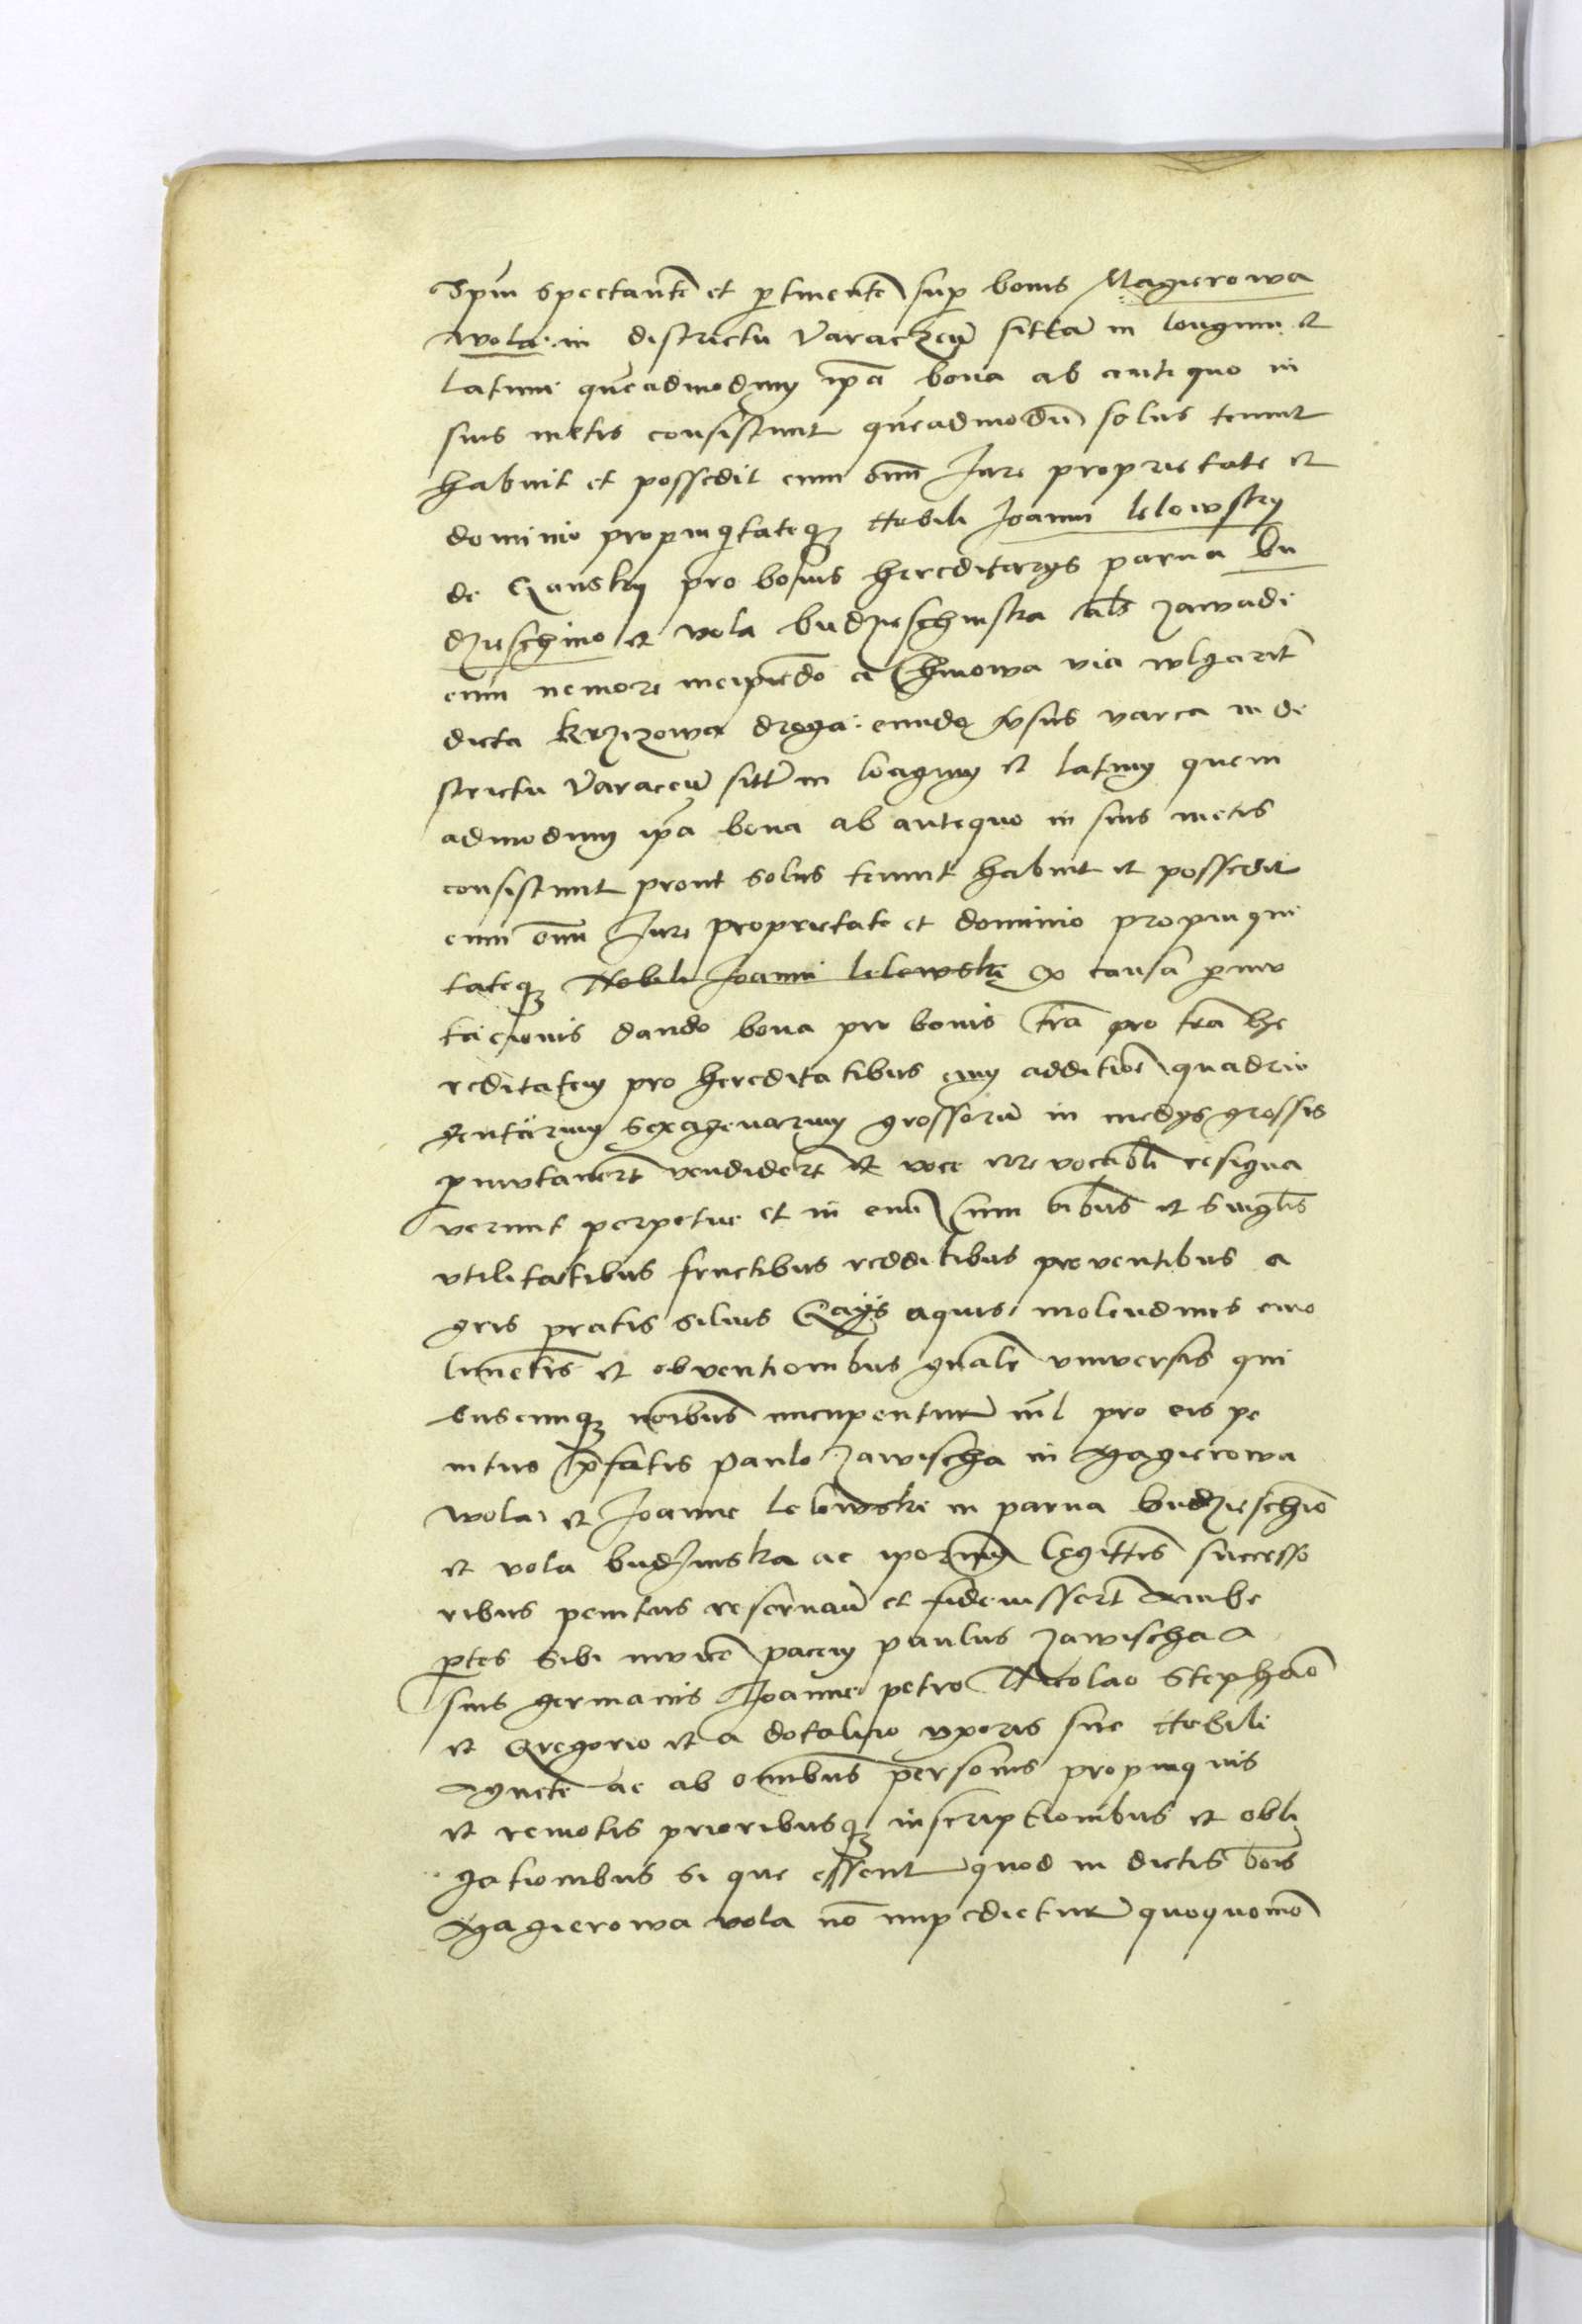 Ipm̄ spectantē et ꝑtinentē sup bonis Magierowa
wola in districtu Varaczeñ sittā in longum et
latum queadmodum ip̄a bona ab antiquo in
suis metis consistunt queadmodū solus tenuit
habuit et possedit cum om̄i Iure proprietate et
dominio propinq̃tateqꝫ Nobili Joanni lelowsky
de Qansky pro bonis hereditarys parua bu
dzieschino et vola budzieschinska al̄s zawadi
cum nemore incipiendo a Chinowa via wlgarit̄
dicta krzizowa droga eundo v̄sus varca in di
strictu Varaceñ sitt̄ in longum et latum quem
admodum ip̄a bona ab antequo in suis metis
consistunt prout solus tenuit habuit et possedit
cum om̄i Iure proprietate et dominio propinqui
tateqꝫ Nobili Joanni lelowski ex causa ꝑmu
tacionis dando bona pro bonis tr̄ā pro tr̄a he
reditatem pro hereditatibus cum additiōe quadrin
gentarum sexagenarum grossorū in medys grossis
ꝑmutauert̄ vendidert̄ et voce irreuocabil̄i resigna
verunt perpetue et in euū Cum oībus et singl̄is
vtilitatibus fructibus redditibus prouentibus a
gris pratis siluis Gays aquis molendinis emo
limētis et obventionibus gnāl̄r vniuersis qui
buscunqꝫ noībus nuncupentur nil pro eis pe
nitus p̄fatis Paulo Zawischa in Magierowa
wola et Joanne lelowski in parua budzieschīo
et vola budzinska ac ipōrum legittīs successo
ribus penitus reseruan̄ et fideiussert̄ Ambe
ꝑtes sibi inuicē pacem paulus zawischa a
suis germanis Joanne petro Nicolao Stephāo
et Gregorio et a dotalitio vxoris sue Nobili
Agnetē ac ab om̄ibus personis propinquis
et remotis prioribusqꝫ inscriptionibus et obli
gationibus si que essent quod in dictis boīs
Magierowa vola nō impedietur quoquomō